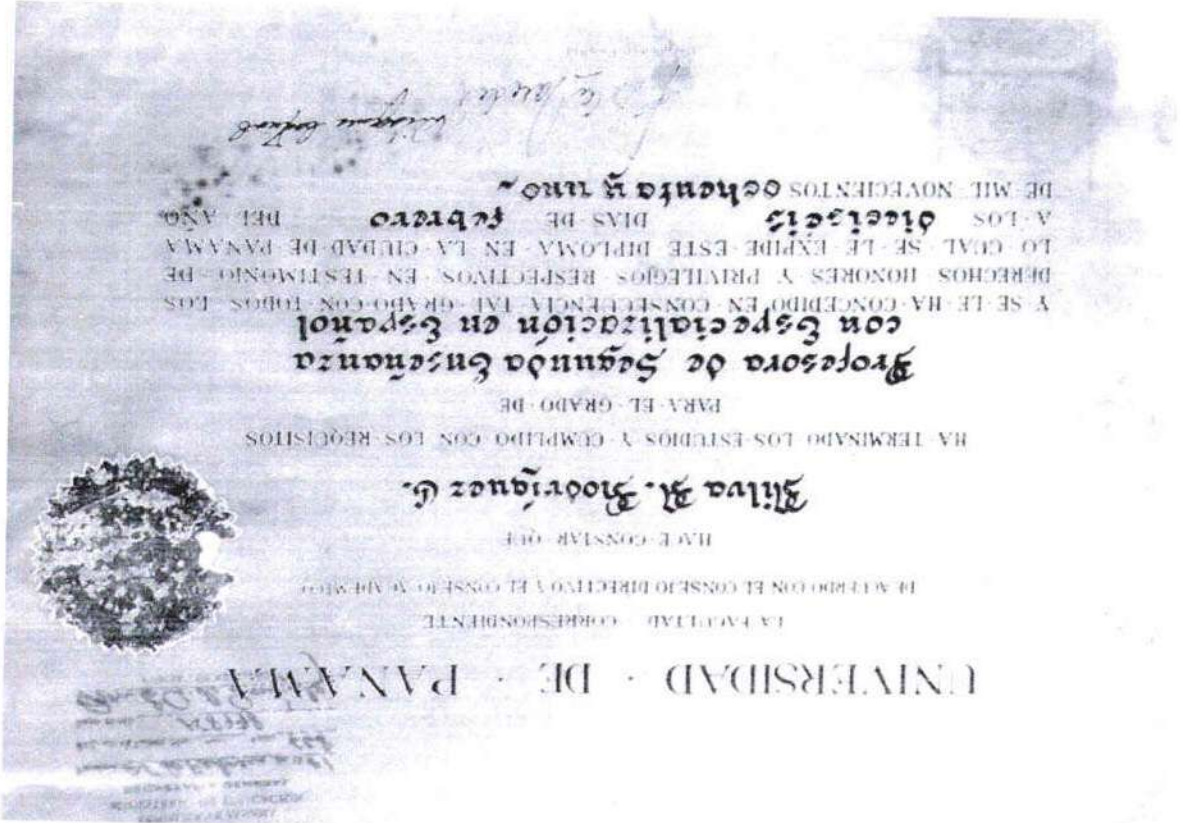 UNIVERSIDAD · DE · PANAMA
LA FACULTAD CORRESPONDIENTE
DE ACUERDO CON EL CONSEJO DIRECTIVO Y EL CONSEJO ACADEMICO
HACE · CONSTAR · QUE
Nilva R. Rodríguez C.
HA · TERMINADO · LOS · ESTUDIOS · Y · CUMPLIDO · CON · LOS · REQUISITOS
PARA · EL · GRADO · DE
Profesora de Segunda Enseñanza
con Especialización en Español
Y · SE · LE · HA · CONCEDIDO · EN · CONSECUENCIA · TAL · GRADO · CON · TODOS · LOS
DERECHOS · HONORES · Y · PRIVILEGIOS · RESPECTIVOS · EN · TESTIMONIO · DE
LO · CUAL · SE · LE · EXPIDE · ESTE · DIPLOMA · EN · LA · CIUDAD · DE · PANAMA
A · LOS dieciséis DIAS · DE febrero DEL · AÑO
DE · MIL · NOVECIENTOS ochenta y uno-